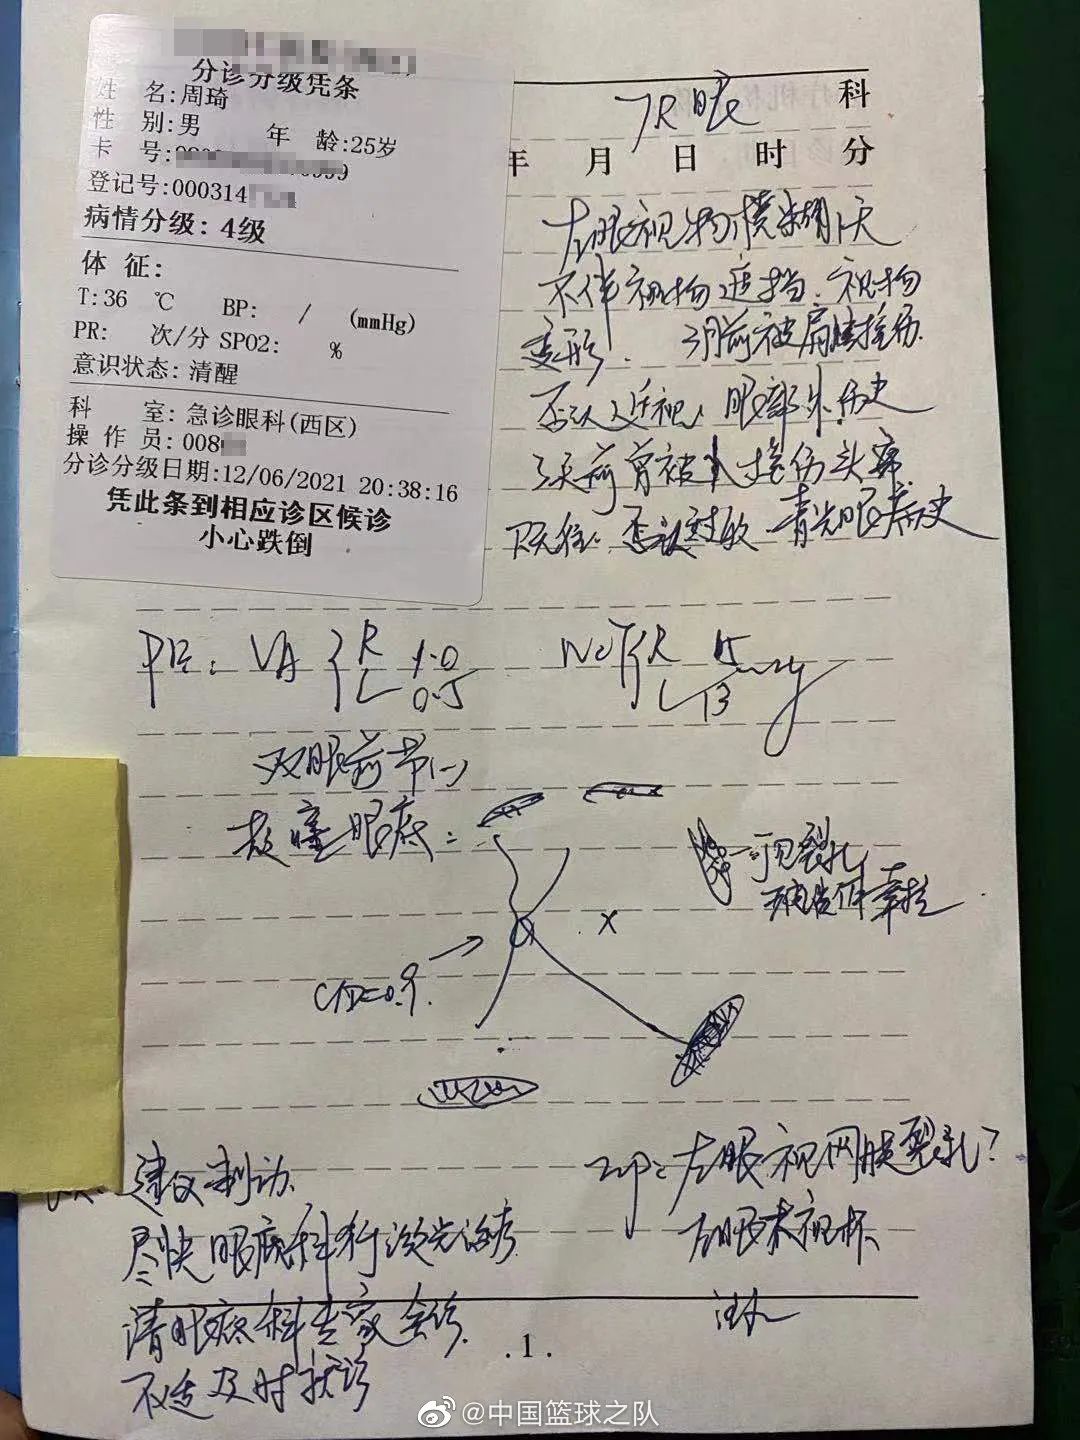 分诊分级凭条
姓 名:周琦
性 别:男 年 龄:25岁
卡 号:
登记号:000314
病情分级: 4级
体 征:
T:36 ℃ BP: / (mmHg)
PR: 次/分 SPO2: %
意识状态: 清醒
科 室: 急诊眼科(西区)
操 作 员: 008
分诊分级日期:12/06/2021 20:38:16
凭此条到相应诊区候诊
小心跌倒
眼 科
年 月 日 时 分
左眼视物模糊1天
不伴视物遮挡、视物
变形. 3月前被扇膝撞伤.
否认近视、眼部外伤史
3天前曾被人撞伤头部
既往: 否认过敏 青光眼病史
VA R 1.0
L 0.5
R 15
L 13
双眼前节(-)
散瞳眼底:
可见裂孔
牵拉
C/D=0.9.
建议制动
尽快眼底科行激光治疗
请眼底科专家会诊.
不适及时就诊
Imp: 左眼视网膜裂孔?
左眼大视杯
.1.
@中国篮球之队